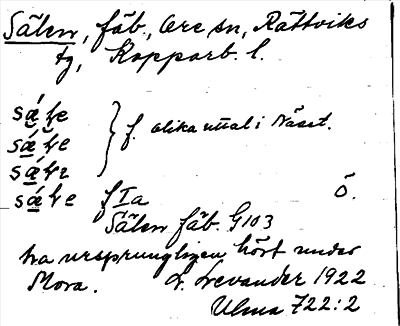 Sälen, fäb., Ore sn, Rättviks
tg, Kopparb. l.
sáte
sáte } f. olika uttal i Näset.
sátı
sáte f Ia Ö.
Sälen fäb. G103
ha ursprungligen hört under
Mora. L. Levander 1922
Ulma 722:2